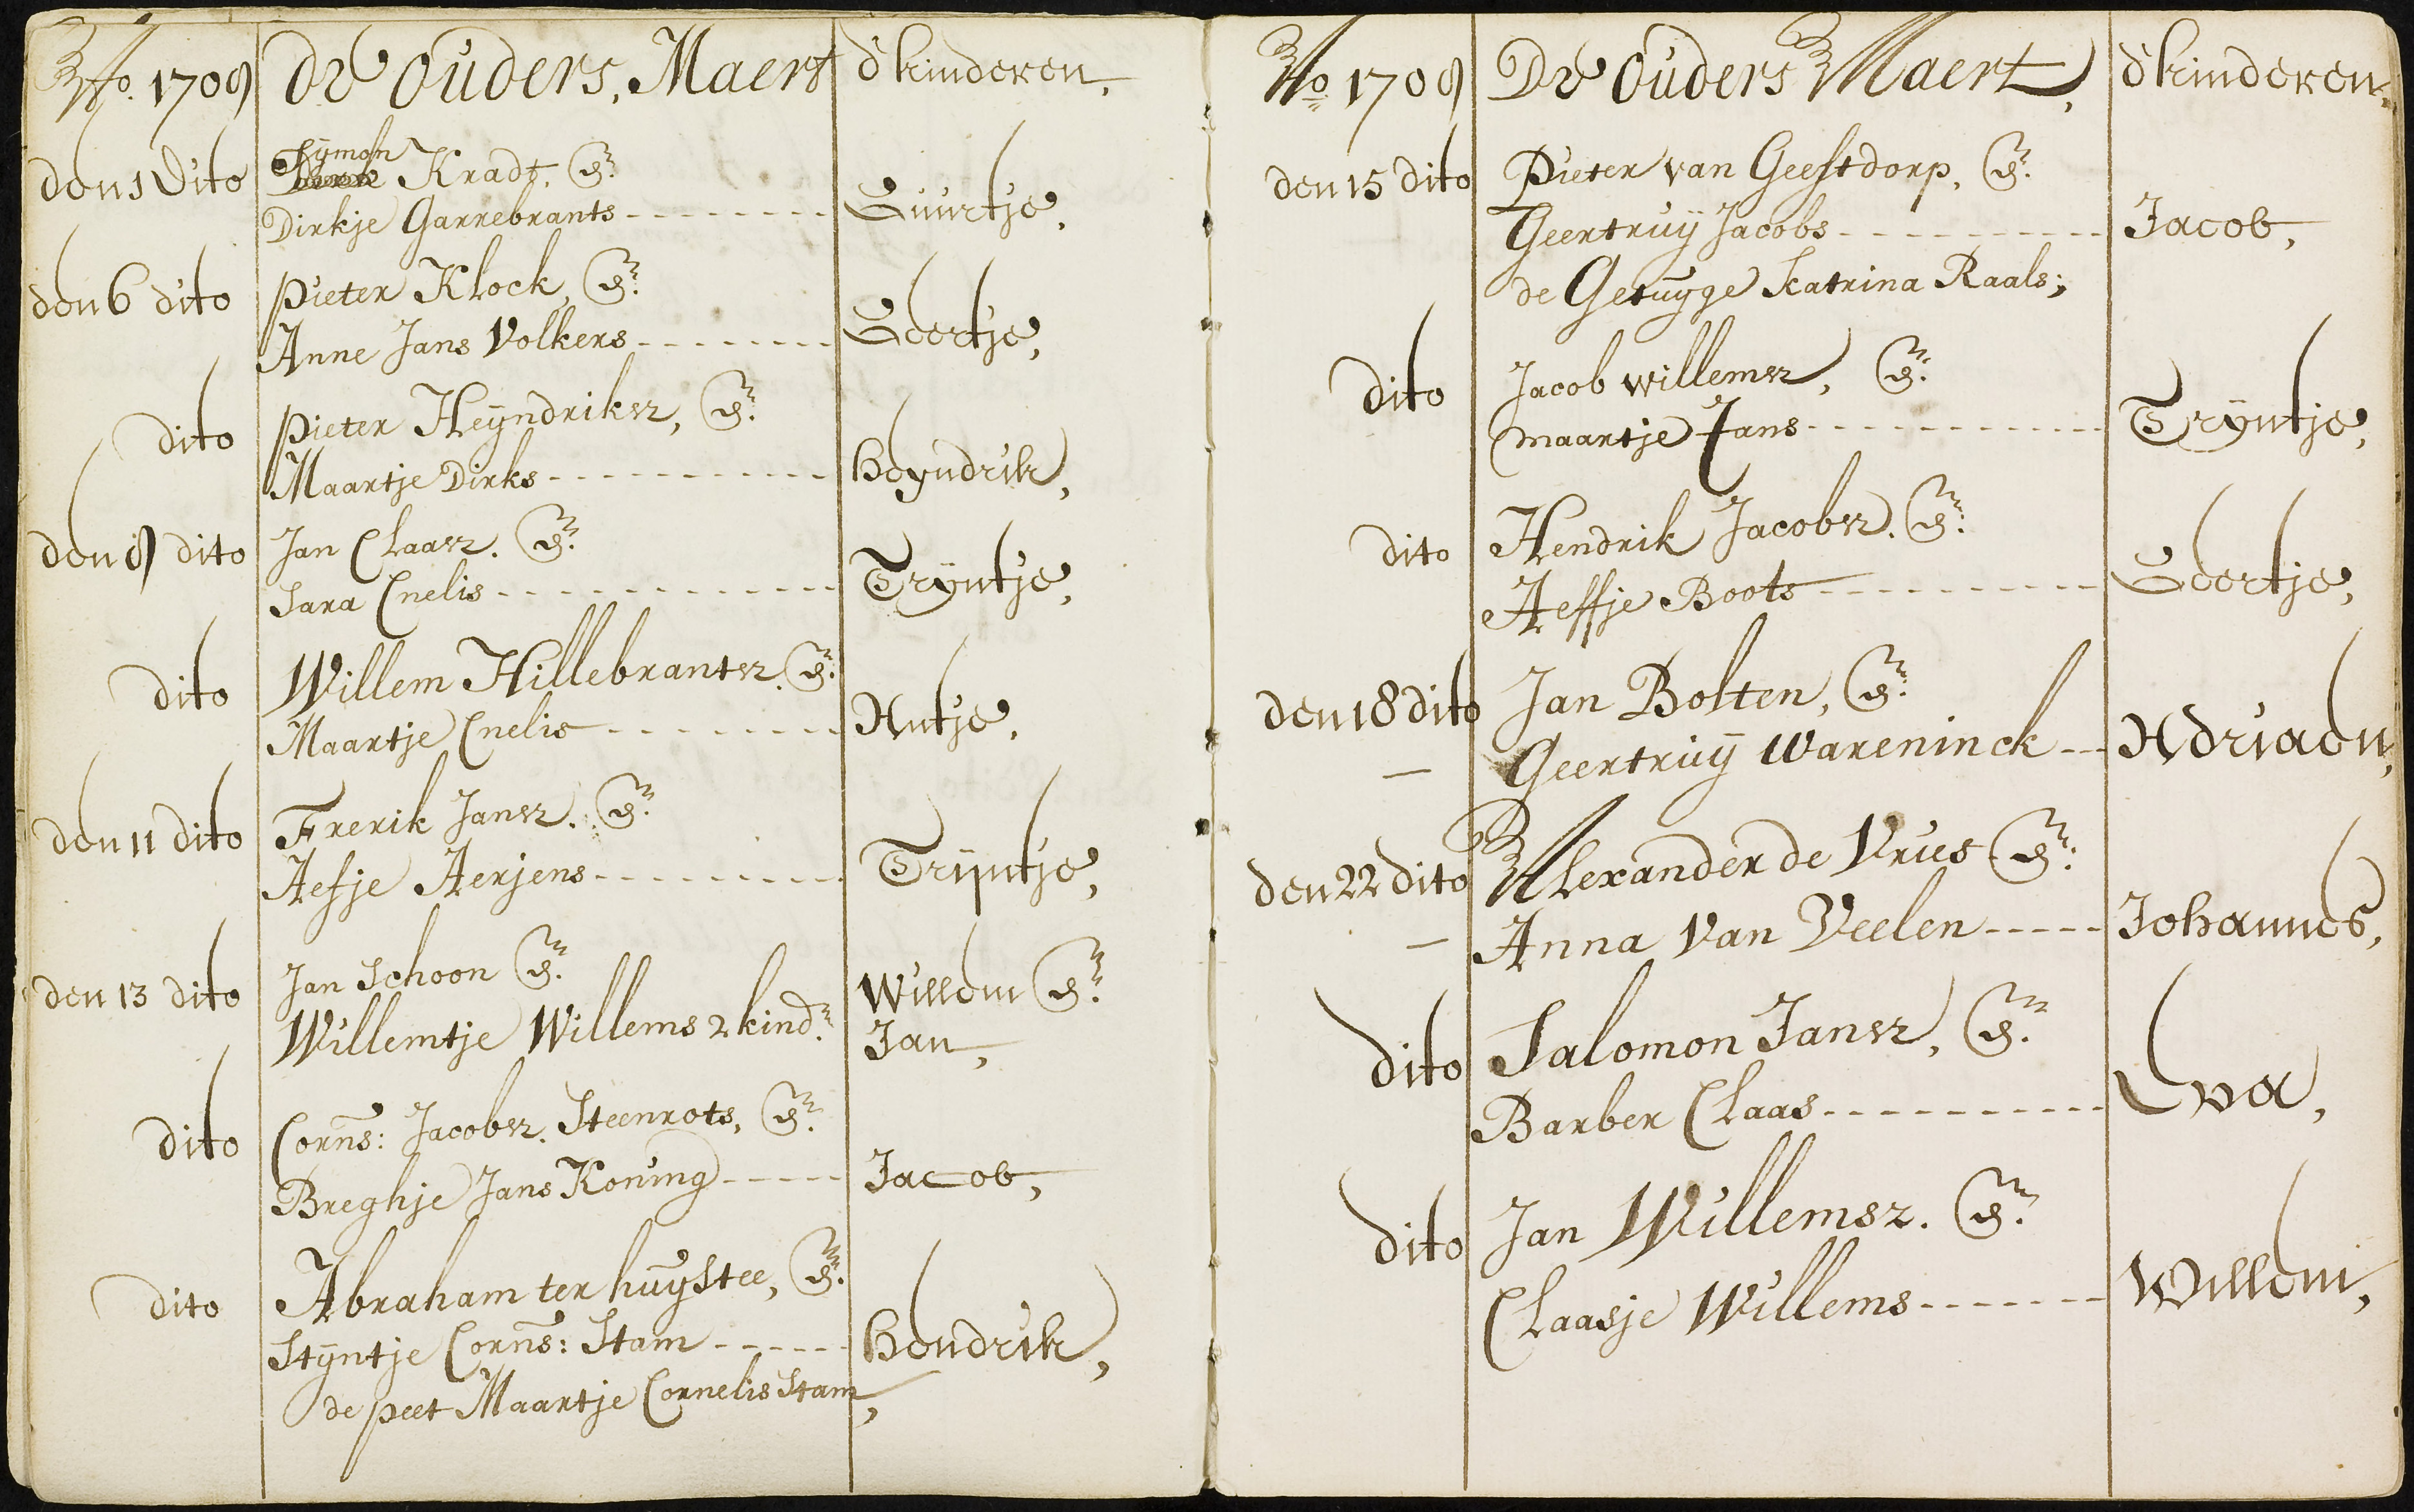 Ao. 1709 De Ouders, Maert d'kinderen,
den 1 Dito Sÿmon Kradt, En
Dirkje Garrebrants - - - - - - - - Guurtje,
den 6 dito Pieter Klock, En
Anne Jans Volkers - - - - - - - - Geertje,
dito Pieter Heÿndriksz, En
Maartje Dirks - - - - - - - - - - - Heyndrik,
den 8 dito Jan Claasz. En
Sara Cnelis - - - - - - - - - - - - - Trÿntje,
dito Willem Hillebrantsz. En
Maartje Cnelis - - - - - - - - - Antje,
den 11 dito Frerik Jansz. En
Aefje Aerjens - - - - - - - - - Trijntje,
den 13 dito Jan Schoon En Willem En
Willemtje Willems 2 kindn. Jan,
dito Corns: Jacobsz. Steenrots, En
Breghje Jans Koning - - - - - Jacob,
dito Abraham ter huÿstee, En
Stÿntje Corns: Stam - - - - - Hendrik,
de peet Maartje Cornelis Stam,
Ao 1709 De Ouders Maert, d'kinderen,
den 15 dito Pieter van Geestdorp, En
Geertruÿ Jacobs - - - - - - - - - - Jacob,
de Getuÿge Katrina Raals;
dito Jacob willemsz, En
maartje Jans - - - - - - - - - - - - Trÿntje,
dito Hendrik Jacobsz. En
Aeffje Boots - - - - - - - - - - Geertje,
den 18 dito Jan Bolten, En
— Geertruÿ Wareninck - - Adriaen,
den 22 dito Alexander de Vries En
— Anna Van Veelen - - - - - Johannes,
dito Salomon Jansz, En
Barber Claas - - - - - - - - - - Eva,
dito Jan Willemsz. En
Claasje Willems - - - - - - - Willem,